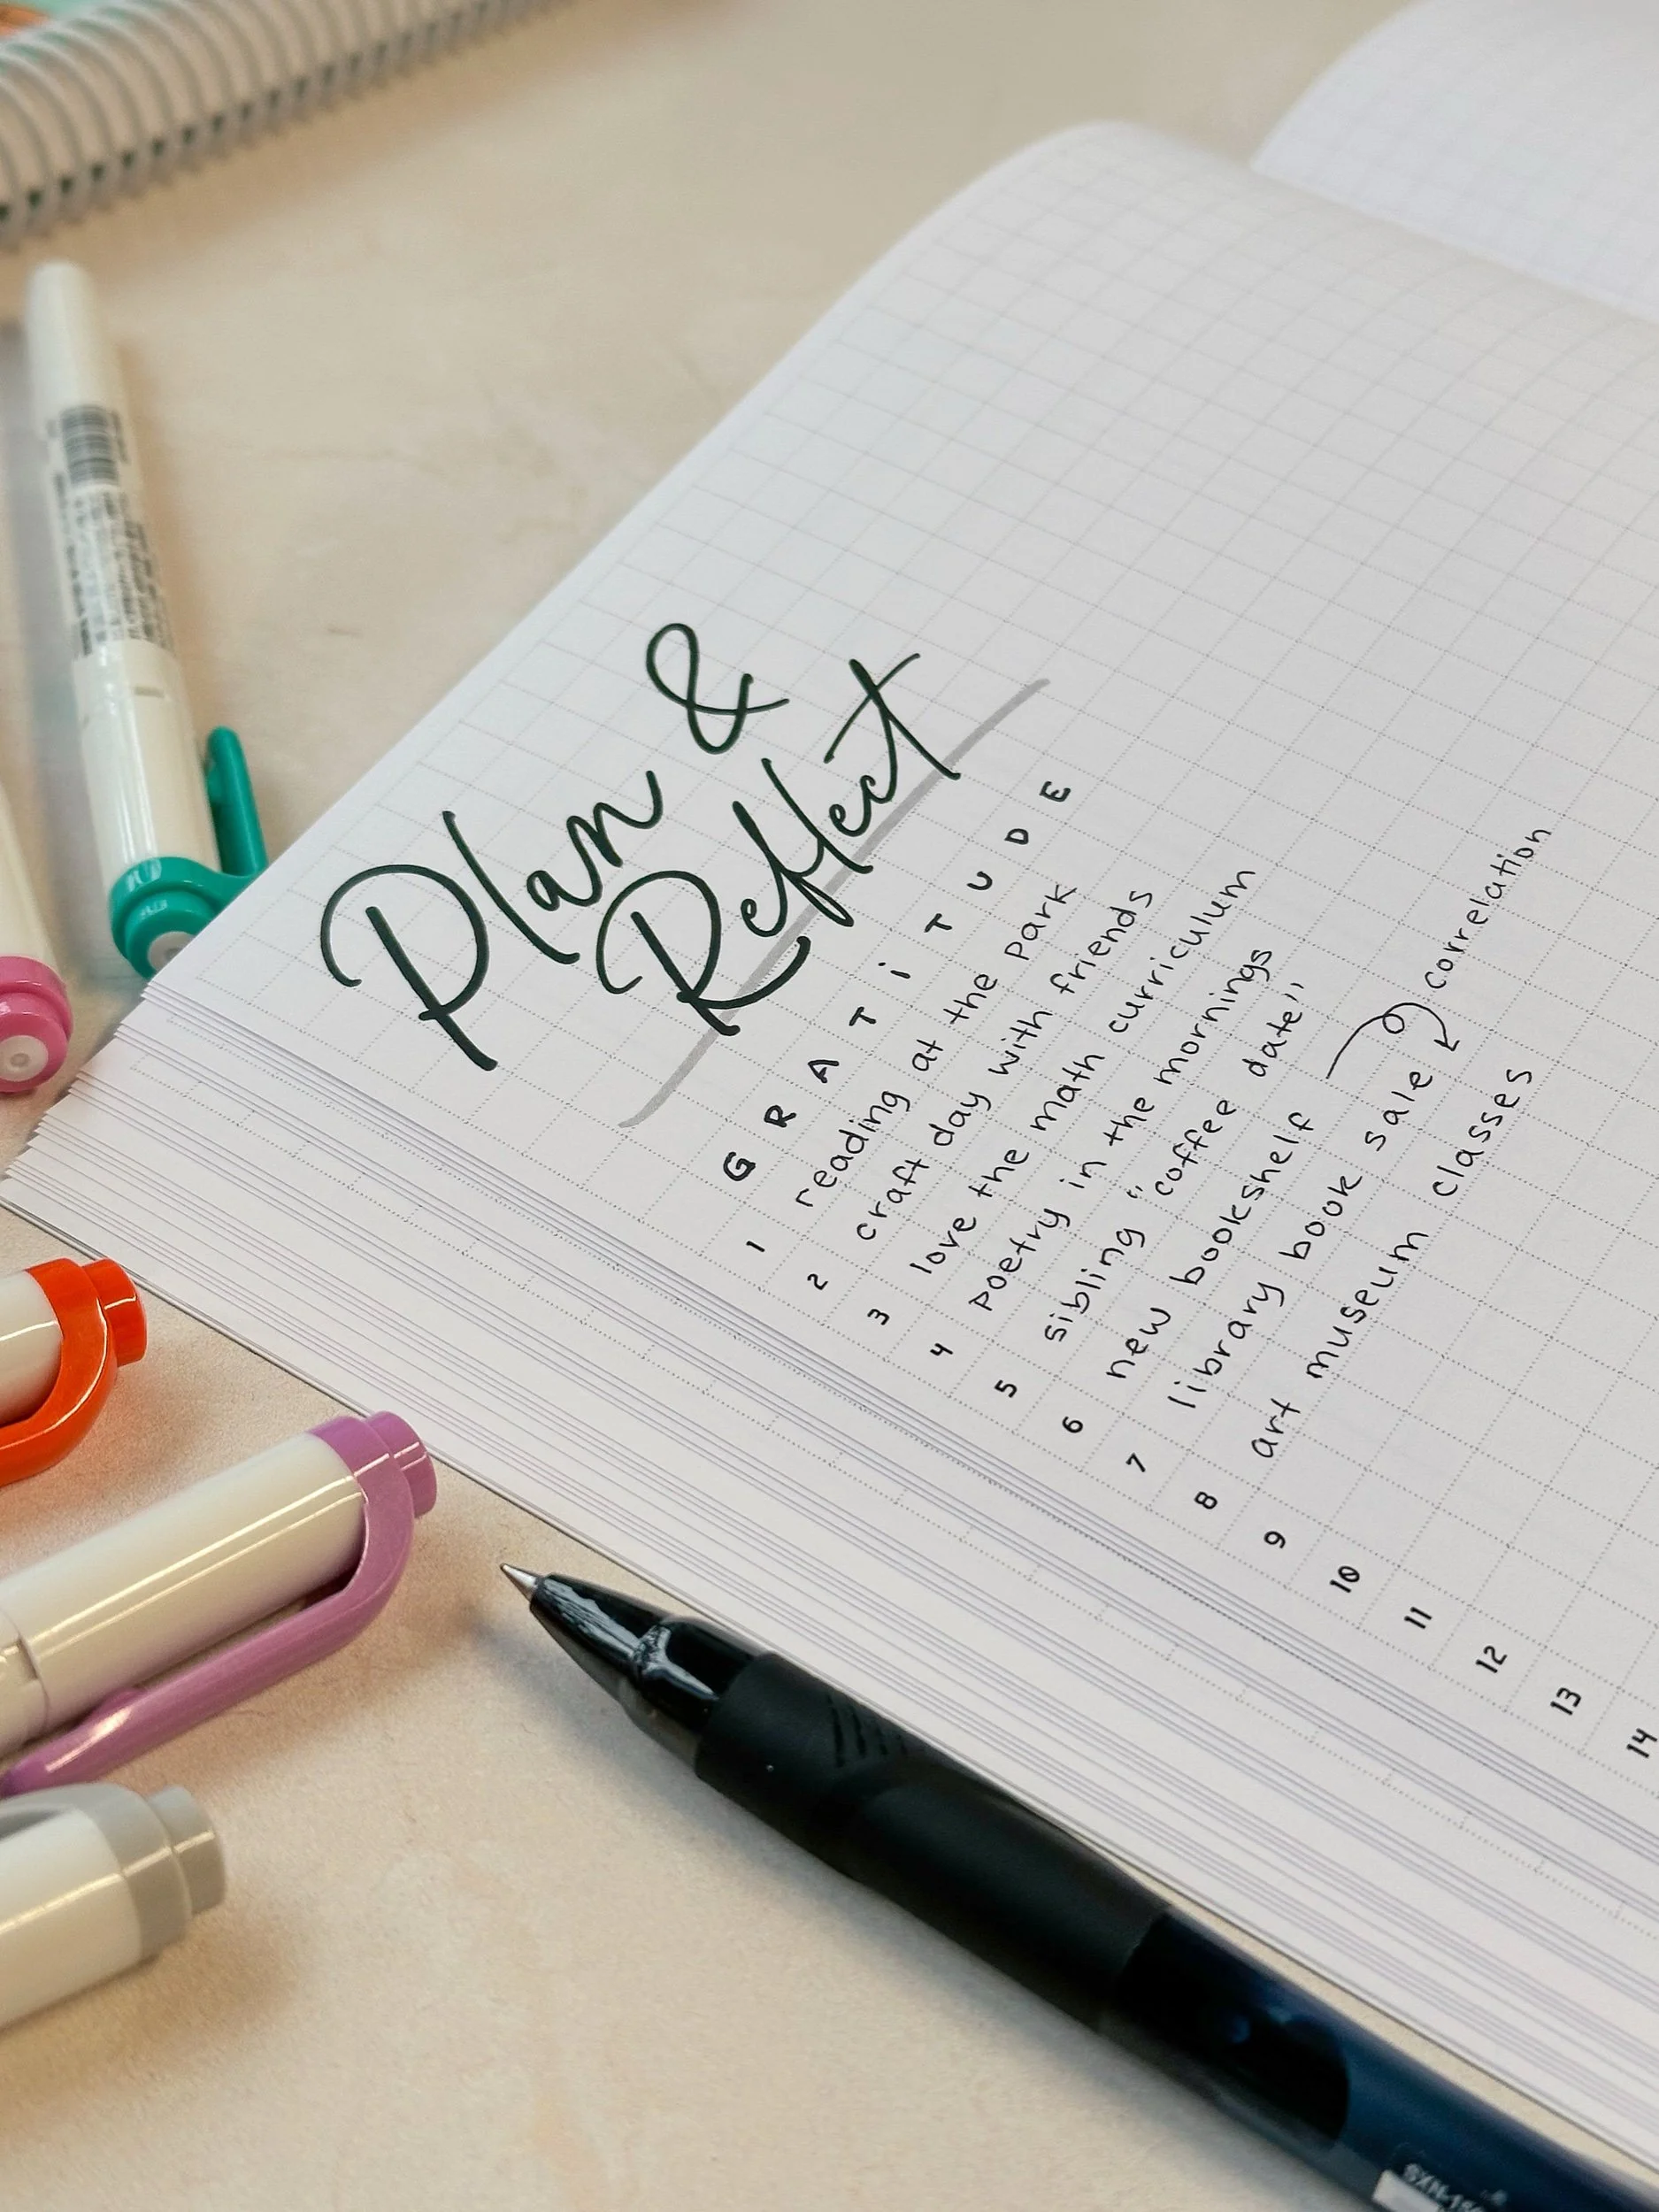 Plan &
Reflect
GRATiTUDE
1 reading at the park
2 craft day with friends
3 love the math curriculum
4 poetry in the mornings
5 sibling "coffee date"
6 new bookshelf
correlation
7 library book sale
8 art museum classes
9
10
11
12
13
14